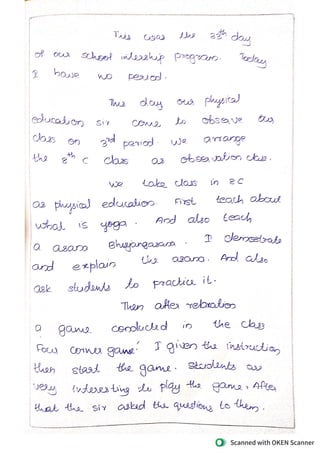 This was the 33th day
of our school intership program. Today
I have no period.
This day our physical
education sir come to observe our
class on 3rd period. we arrange
the 8th C class as observation class.
we take class in 8C
as physical education. First teach about
what is yoga. And also teach
a asana Bhujangasana. I demostrate
and explain the asana. And also
ask students to practice it.
Then after relaxation
a game conducted in the class
Four corner game! I given the instruction
then start the game. Students are
very interesting to play the game. After
that the sir asked the questions to them.
Scanned with OKEN Scanner